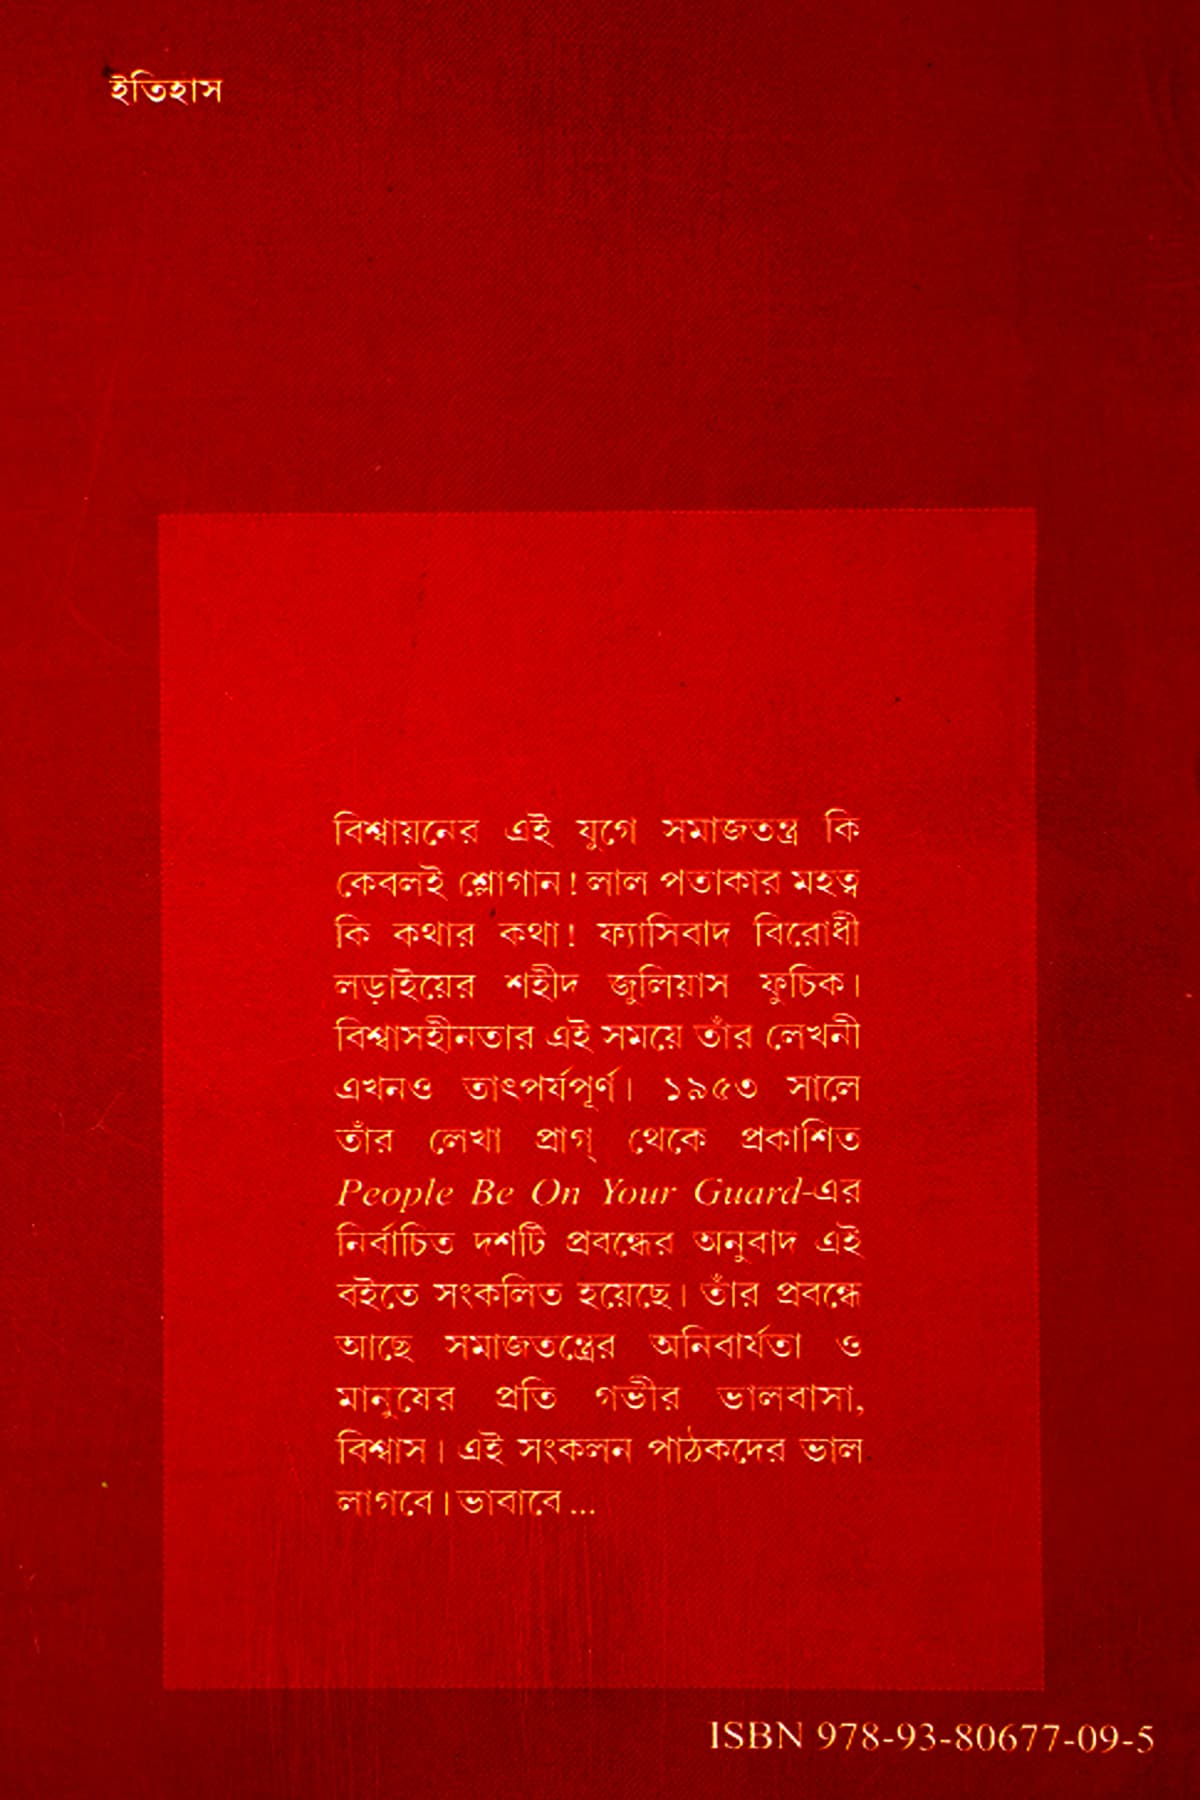 ইতিহাস
বিশ্বায়নের এই যুগে সমাজতন্ত্র কি
কেবলই শ্লোগান! লাল পতাকার মহত্ব
কি কথার কথা! ফ্যাসিবাদ বিরোধী
লড়াইয়ের শহীদ জুলিয়াস ফুচিক।
বিশ্বাসহীনতার এই সময়ে তাঁর লেখনী
এখনও তাৎপর্যপূর্ণ। ১৯৫৩ সালে
তাঁর লেখা প্রাগ্ থেকে প্রকাশিত
People Be On Your Guard-এর
নির্বাচিত দশটি প্রবন্ধের অনুবাদ এই
বইতে সংকলিত হয়েছে। তাঁর প্রবন্ধে
আছে সমাজতন্ত্রের অনিবার্যতা ও
মানুষের প্রতি গভীর ভালবাসা,
বিশ্বাস। এই সংকলন পাঠকদের ভাল
লাগবে। ভাবাবে...
ISBN 978-93-80677-09-5